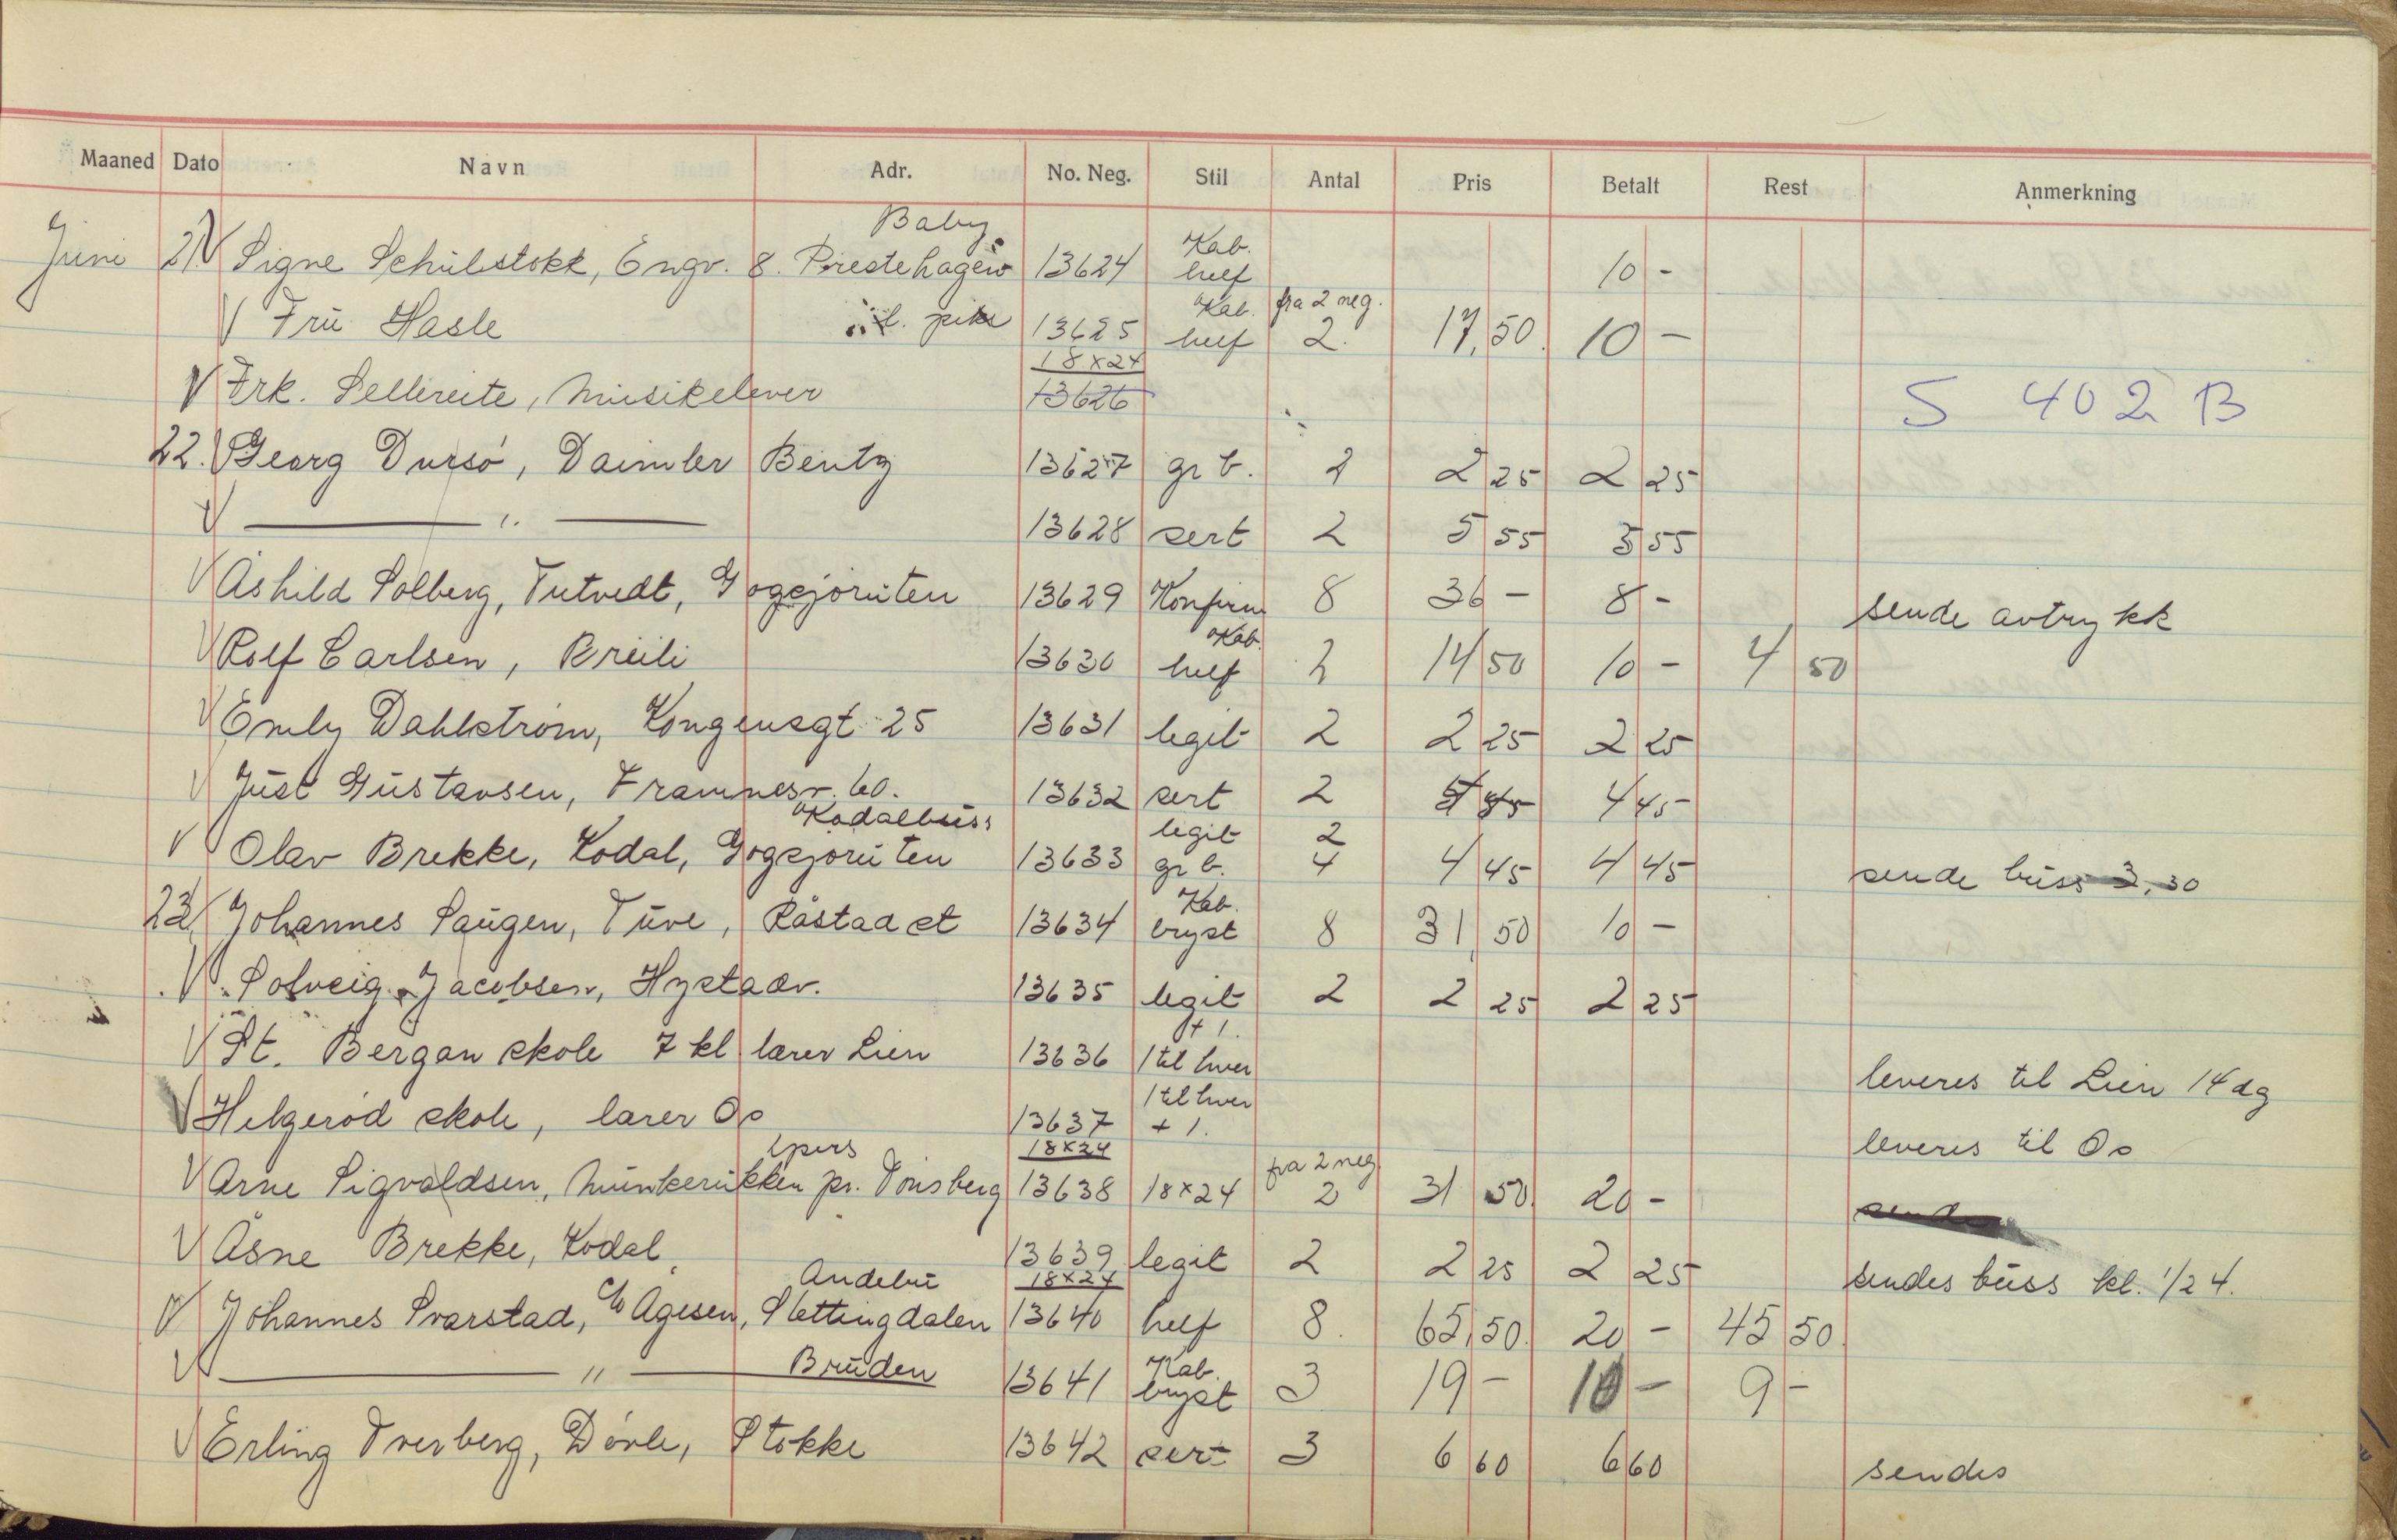 Maaned Dato Navn Adr. No. Neg. Stil Antal Pris Betalt Rest Anmerkning
Baby Kab.
Juni 21. V Signe Schulstokk, Engv. 8. Prestehagen 13624 helf 10 -
Kab. fra 2 neg.
V Fru Hasle l. pike 13625 helf 2. 17,50. 10 -
18x24
V Frk. Sellereite, Musikelever 13626 S 402 B
22. V Georg Dursö, Daimler Bentz 13627 gr b. 2 2 25 2 25
V " 13628 sert 2 5 55 5 55
V Åshild Solberg, Tutvedt, Gogsjøruten 13629 Konfirm 8 36 - 8 - sende avtrykk
Kab.
V Rolf Carlsen, Breili 13630 helf 2 14 50 10 - 4 50
V Emly Dahlstrøm, Kongensgt 25 13631 legit 2 2 25 2 25
V Just Gustavsen, Framnesv. 60. 13632 sert 2 4 45 4 45
Kodalbuss legit 2
V Olav Brekke, Kodal, Gogsjøruten 13633 gr b. 4 4 45 4 45 sende buss 3,30
Kab.
23. V Johannes Saugen, Tuve, Råstad st 13634 bryst 8 31,50 10 -
V Solveig Jacobsen, Hystadv. 13635 legit 2 2 25 2 25
+ 1.
V St. Bergan skole 7 kl lærer Lien 13636 1 til hver leveres til Lien 14 dg
1 til hver
V Helgerød skole, lærer Os 13637 + 1. leveres til Os
2 pers 18x24 fra 2 neg.
V Arne Sigvaldsen, Munkerükken pr. Tønsberg 13638 18x24 2 31 50. 20 - sende
V Åsne Brekke, Kodal 13639 legit 2 2 25 2 25 sendes buss kl. 1/2 4.
Andebu 18x24
V Johannes Svarstad, c/o Agesen, Slettingdalen 13640 helf 8. 65,50. 20 - 45 50
Kab.
V " Bruden 13641 bryst 3 19 - 10 - 9 -
V Erling Tverberg, Døvle, Stokke 13642 sert 3 6 60 6 60 sendes